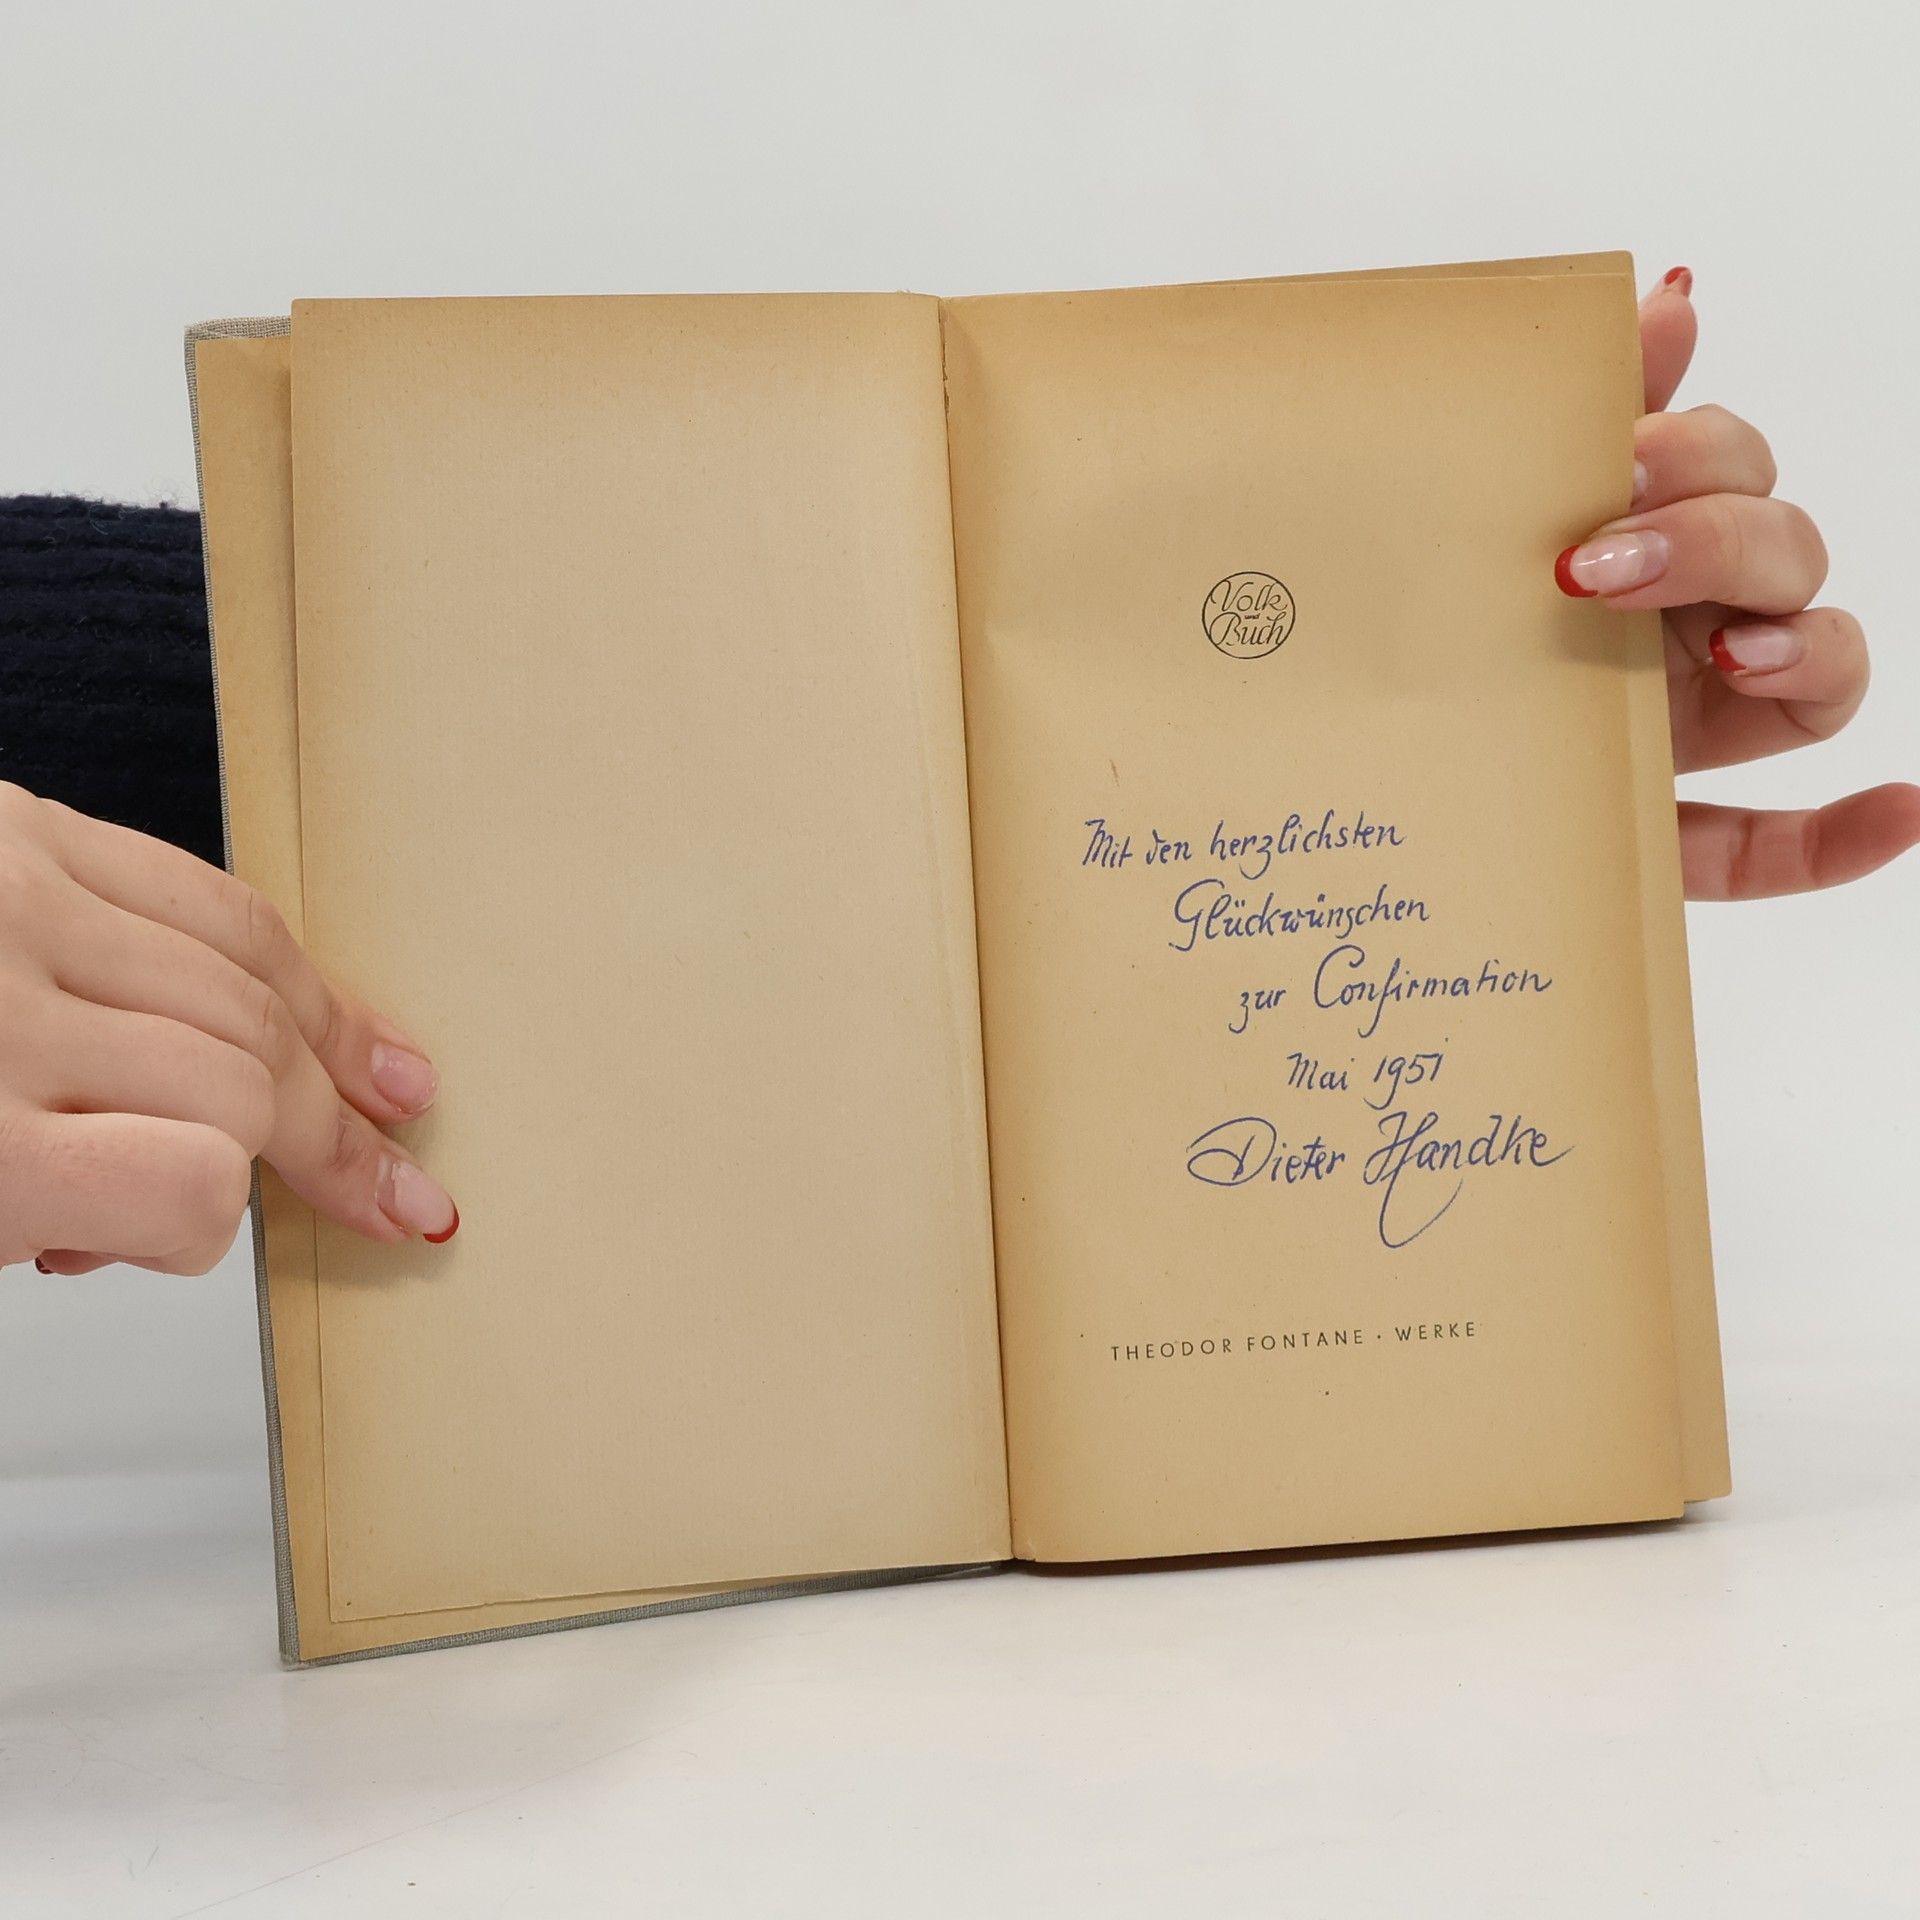 Volk
und
Buch
Mit den herzlichsten
Glückwünschen
zur Confirmation
Mai 1951
Dieter Handke
THEODOR FONTANE · WERKE